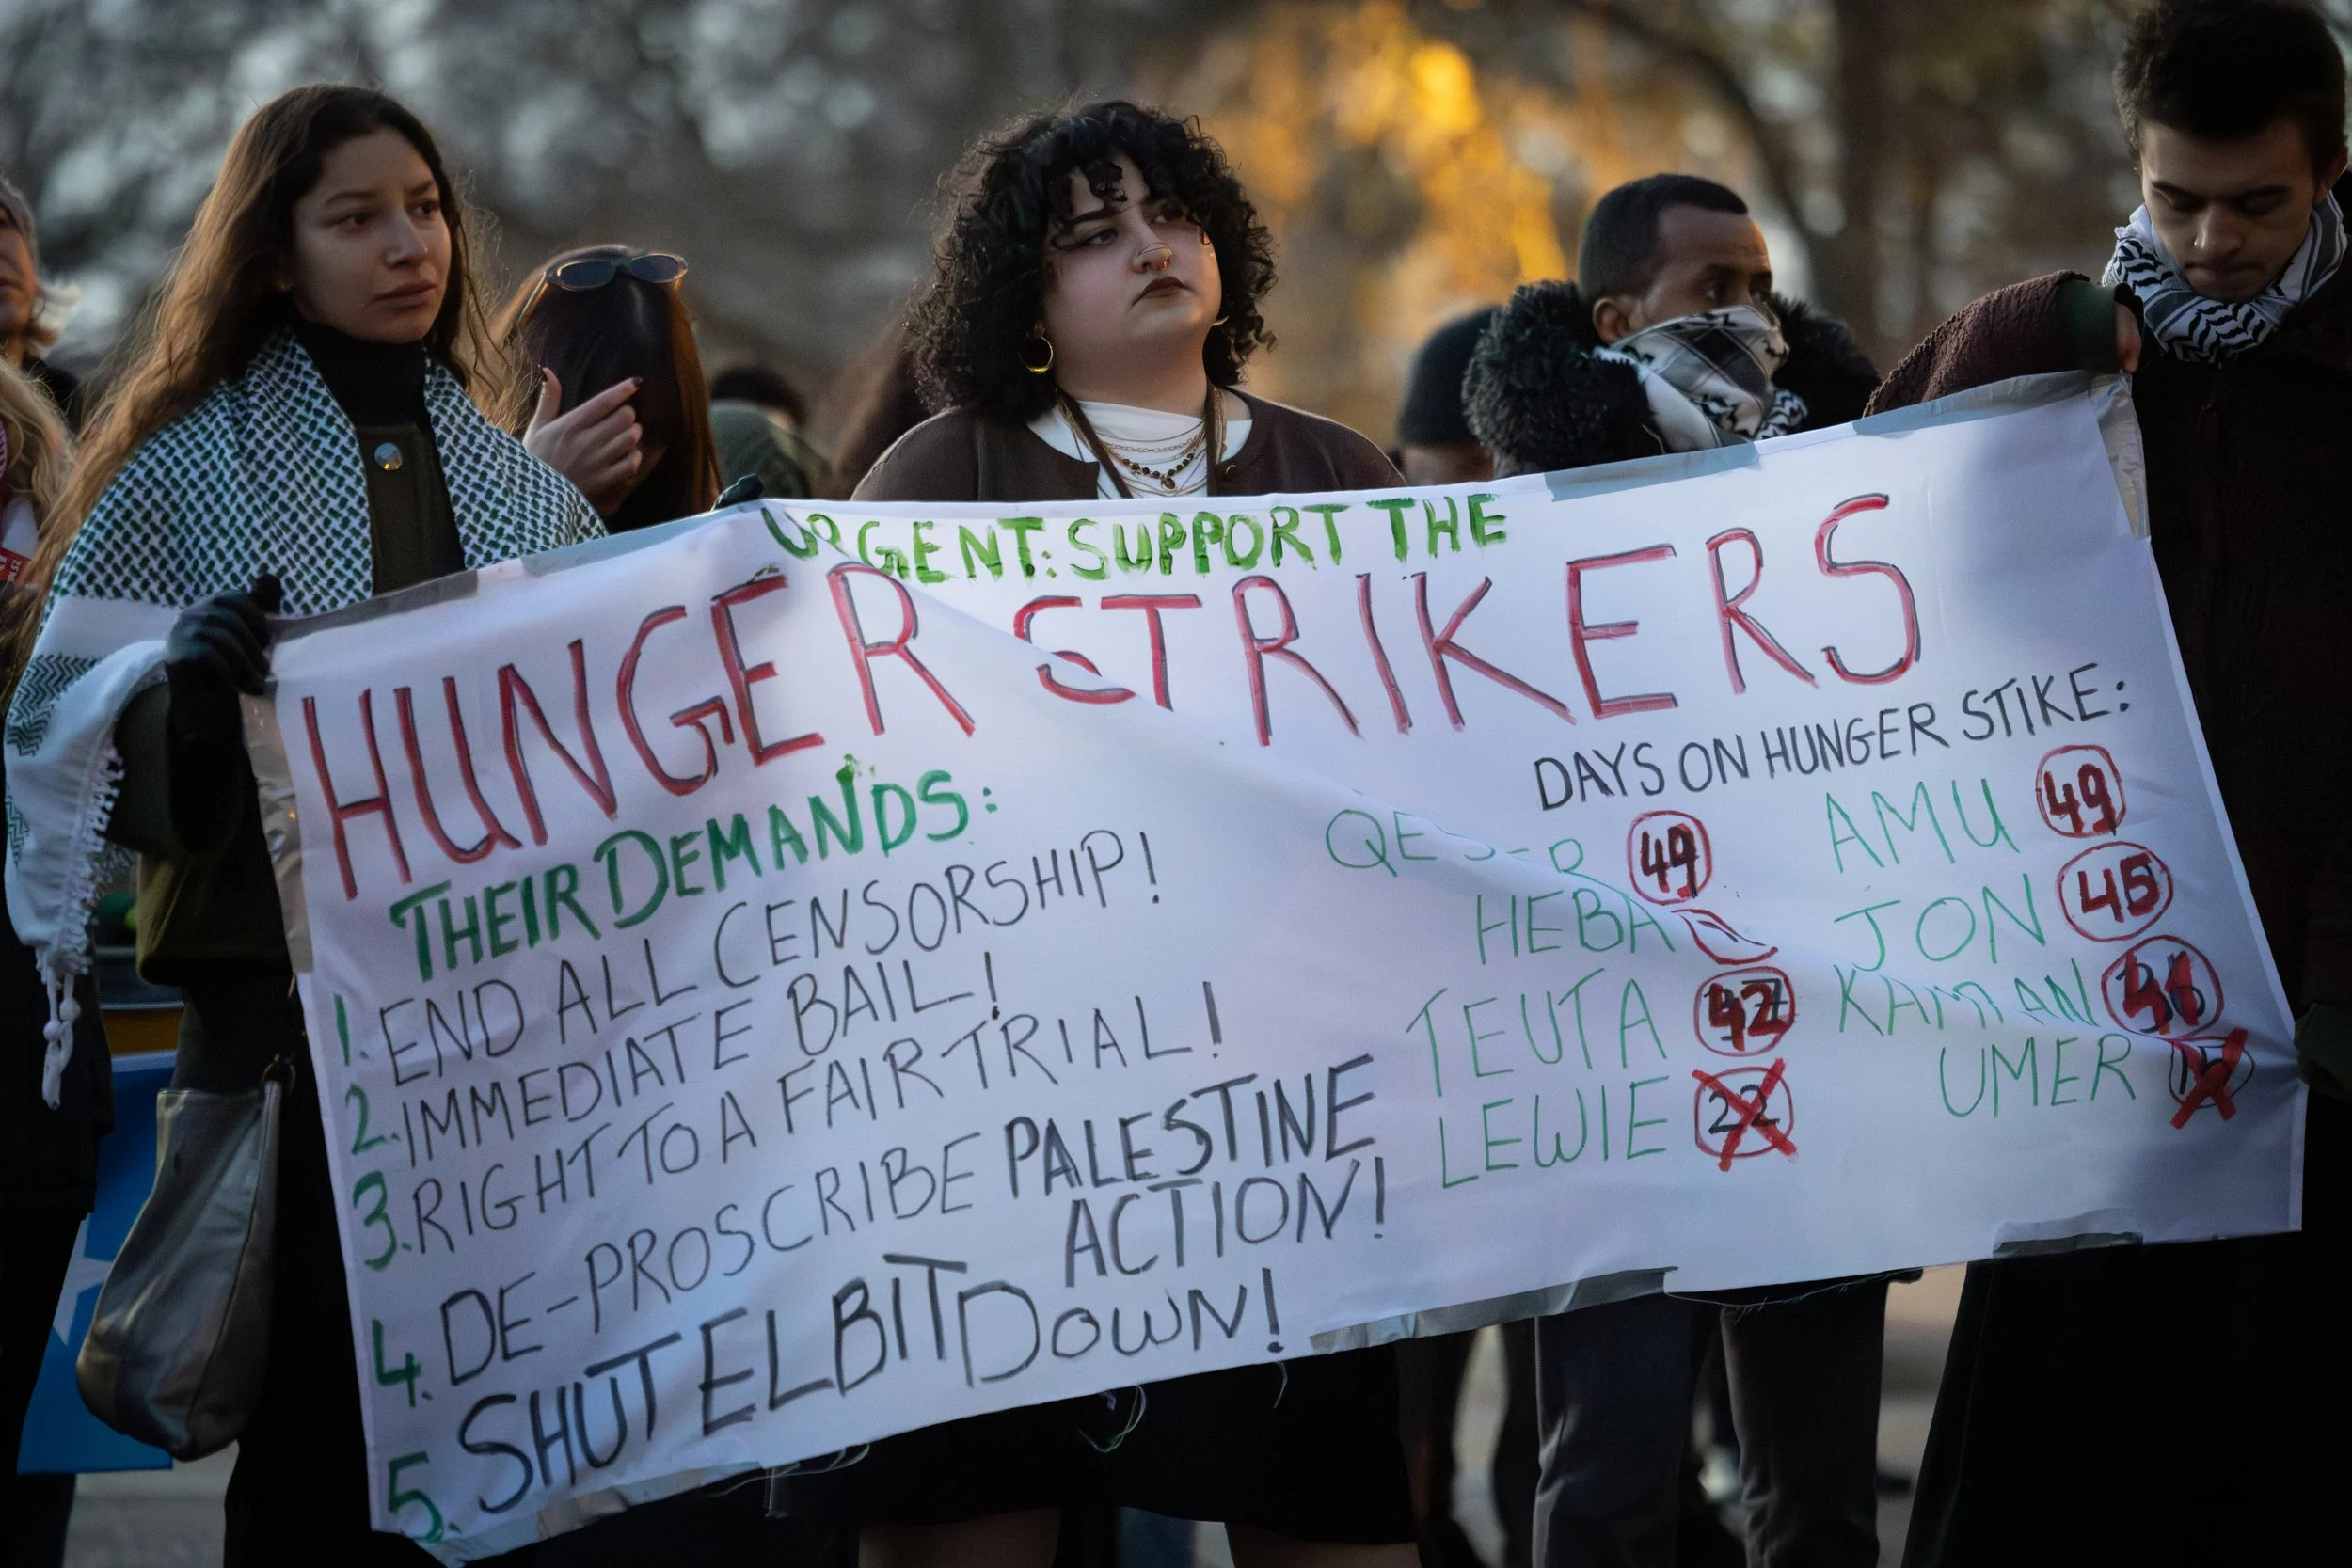 URGENT: SUPPORT THE
HUNGER STRIKERS
THEIR DEMANDS:
1. END ALL CENSORSHIP!
2. IMMEDIATE BAIL!
3. RIGHT TO A FAIR TRIAL!
4. DE-PROSCRIBE PALESTINE
ACTION!
5. SHUT ELBIT DOWN!
DAYS ON HUNGER STIKE:
49
HEBA
TEUTA 42
LEWIE 22
AMU 49
JON 45
KAMRAN
UMER